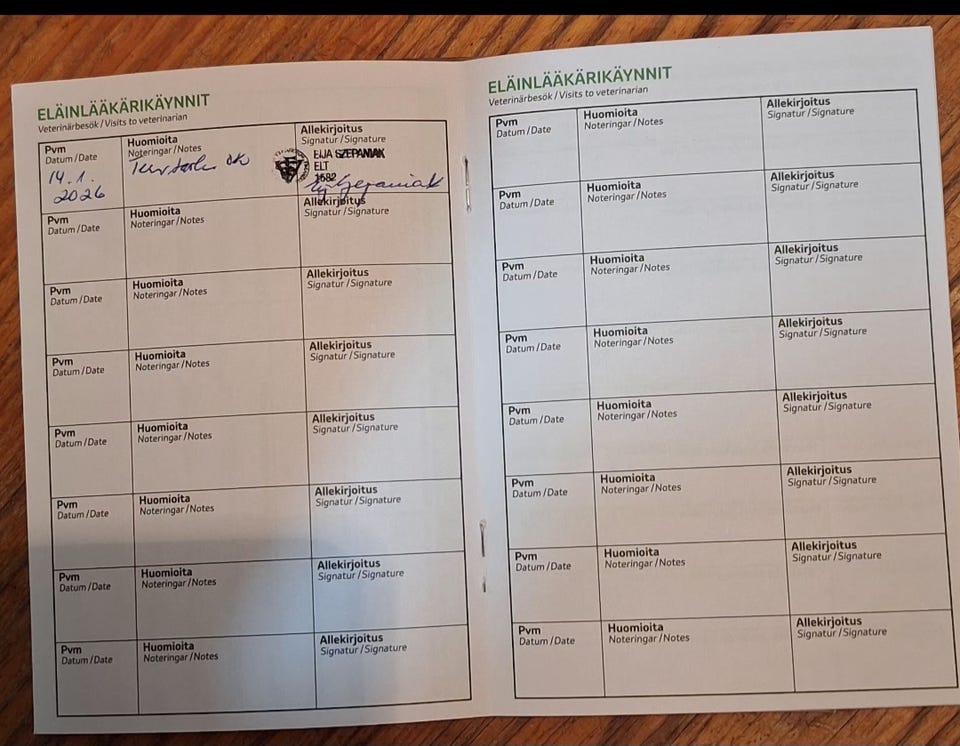 ELÄINLÄÄKÄRIKÄYNNIT
Veterinärbesök / Visits to veterinarian
Pvm
Datum / Date
14.1.
2026
Huomioita
Noteringar / Notes
ok
Allekirjoitus
Signatur / Signature
EIJA SZEPANIAK
ELT
1582
Pvm
Datum / Date
Huomioita
Noteringar / Notes
Allekirjoitus
Signatur / Signature
Pvm
Datum / Date
Huomioita
Noteringar / Notes
Allekirjoitus
Signatur / Signature
Pvm
Datum / Date
Huomioita
Noteringar / Notes
Allekirjoitus
Signatur / Signature
Pvm
Datum / Date
Huomioita
Noteringar / Notes
Allekirjoitus
Signatur / Signature
Pvm
Datum / Date
Huomioita
Noteringar / Notes
Allekirjoitus
Signatur / Signature
Pvm
Datum / Date
Huomioita
Noteringar / Notes
Allekirjoitus
Signatur / Signature
Pvm
Datum / Date
Huomioita
Noteringar / Notes
Allekirjoitus
Signatur / Signature
ELÄINLÄÄKÄRIKÄYNNIT
Veterinärbesök / Visits to veterinarian
Pvm
Datum / Date
Huomioita
Noteringar / Notes
Allekirjoitus
Signatur / Signature
Pvm
Datum / Date
Huomioita
Noteringar / Notes
Allekirjoitus
Signatur / Signature
Pvm
Datum / Date
Huomioita
Noteringar / Notes
Allekirjoitus
Signatur / Signature
Pvm
Datum / Date
Huomioita
Noteringar / Notes
Allekirjoitus
Signatur / Signature
Pvm
Datum / Date
Huomioita
Noteringar / Notes
Allekirjoitus
Signatur / Signature
Pvm
Datum / Date
Huomioita
Noteringar / Notes
Allekirjoitus
Signatur / Signature
Pvm
Datum / Date
Huomioita
Noteringar / Notes
Allekirjoitus
Signatur / Signature
Pvm
Datum / Date
Huomioita
Noteringar / Notes
Allekirjoitus
Signatur / Signature